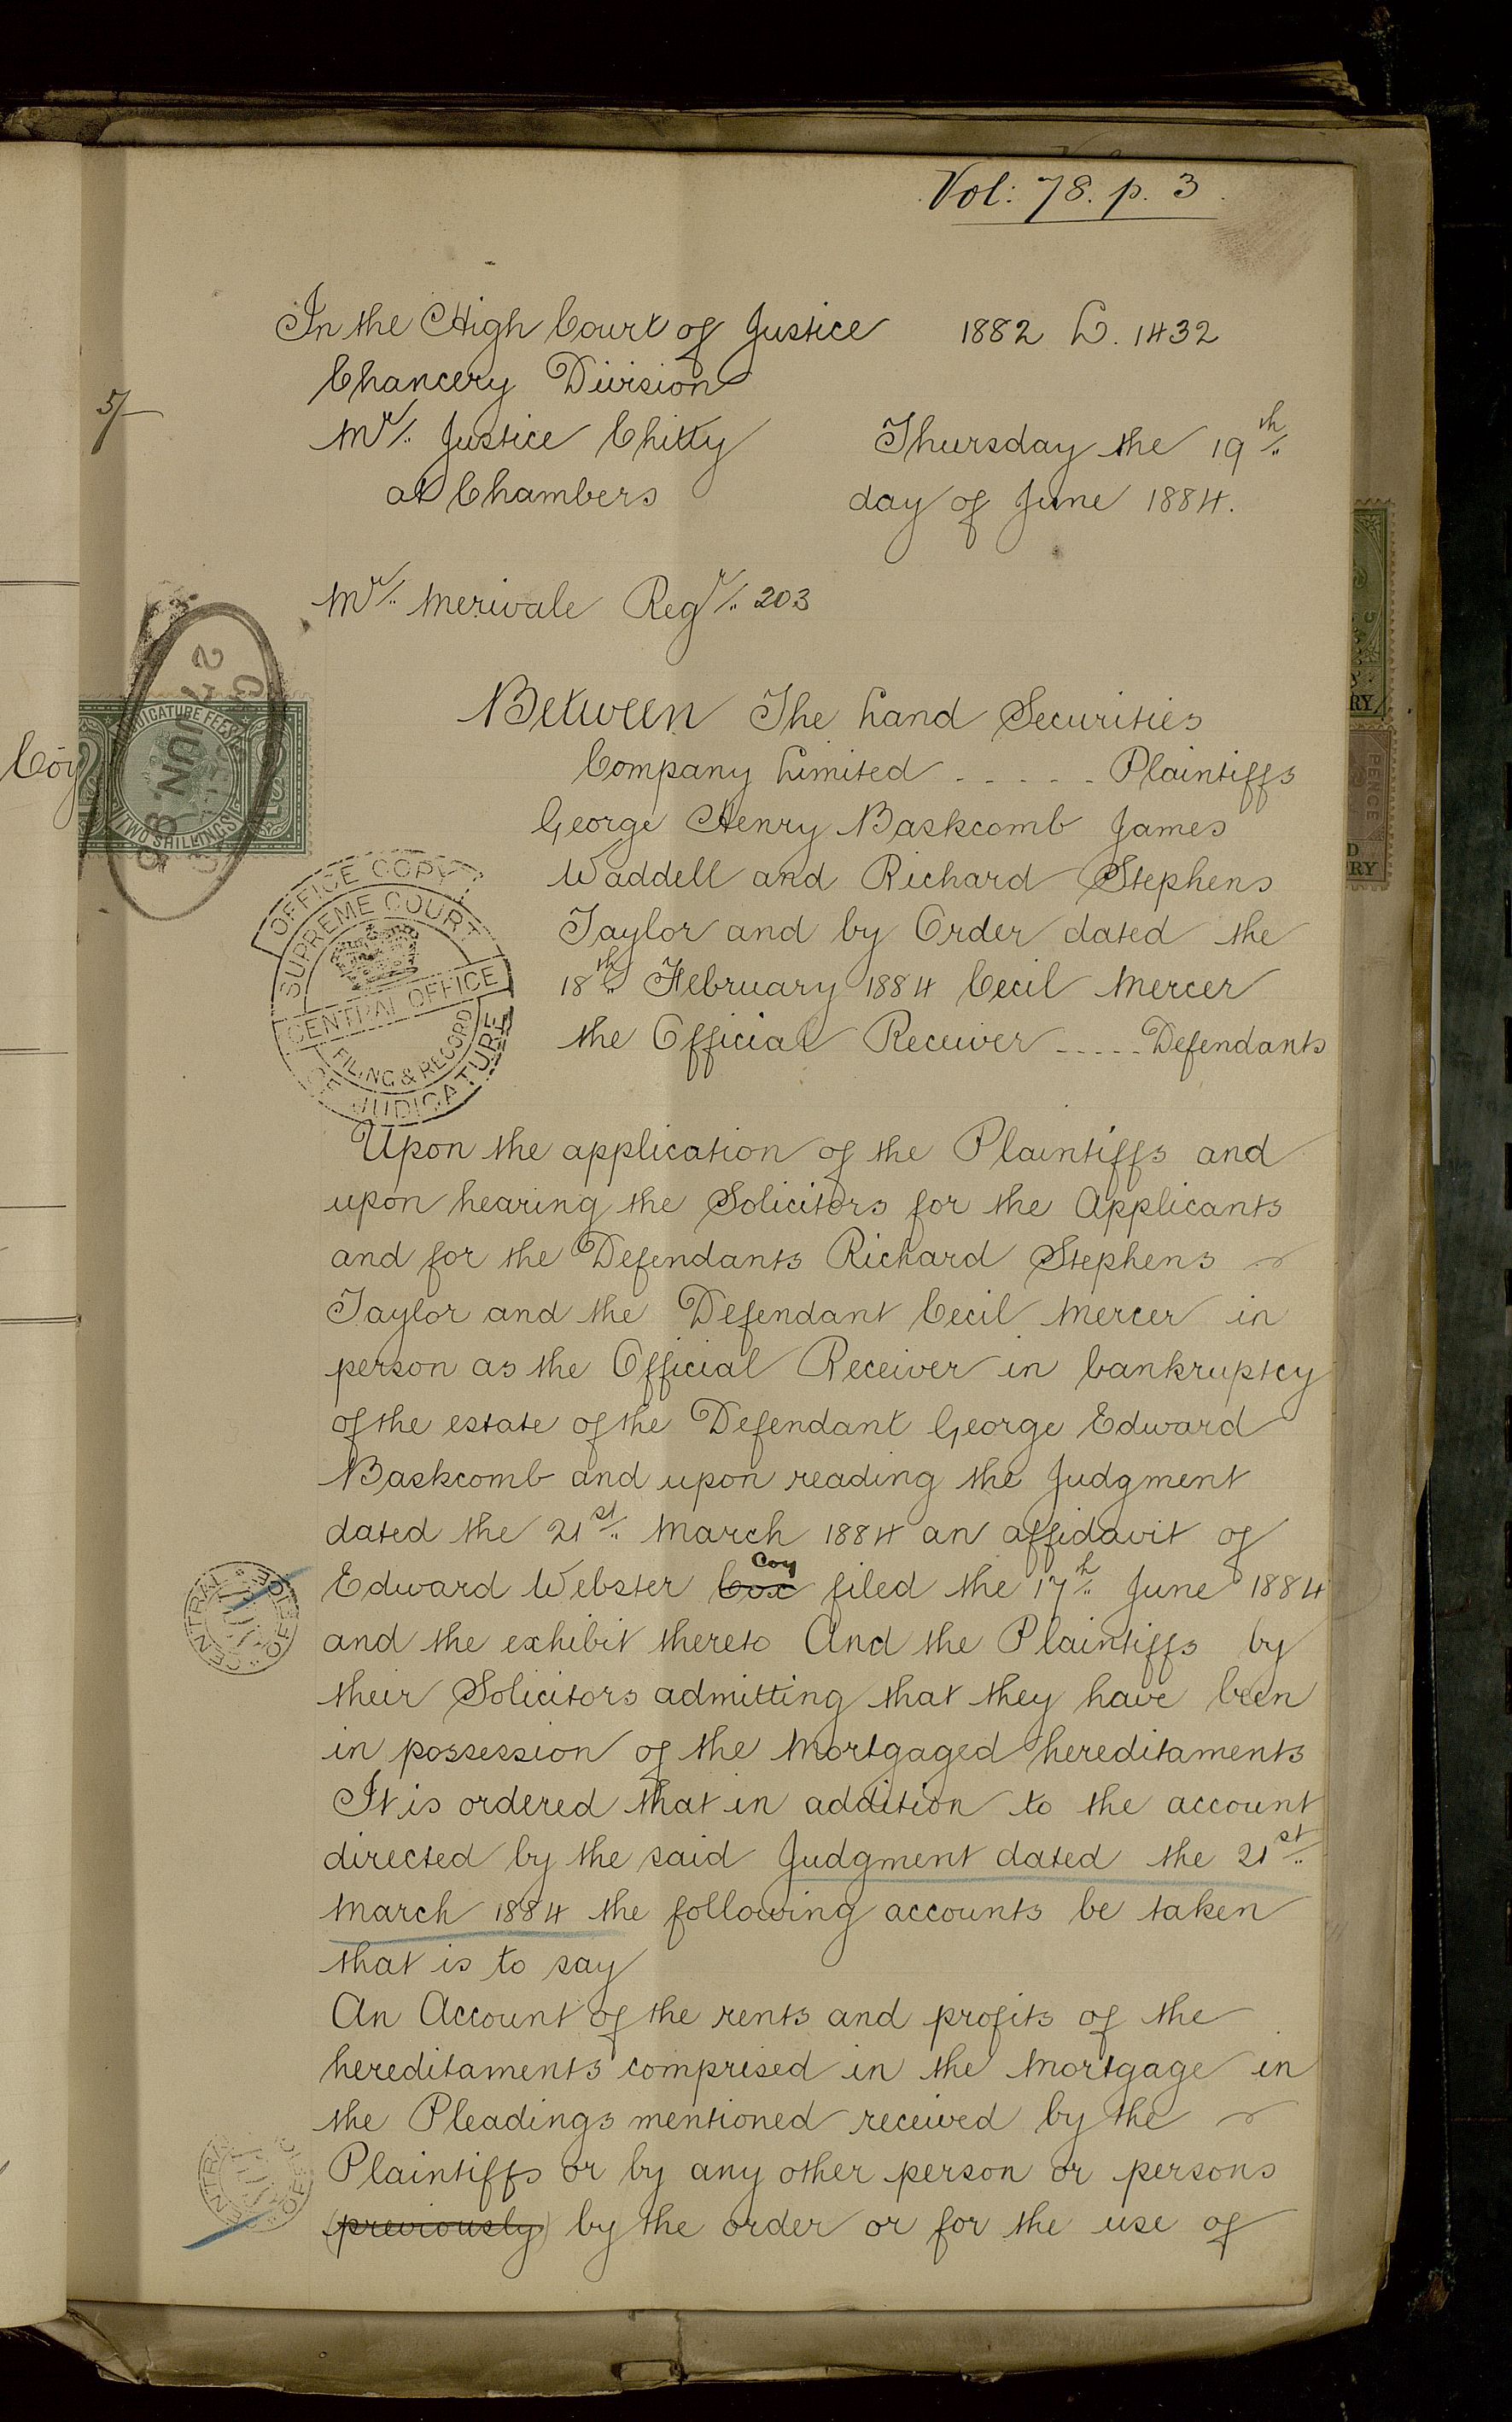 Vol: 78. p. 3.
In the High Court of Justice 1882 L. 1432
Chancery Division
5/-
Mr. Justice Chitty Thursday the 19th
at Chambers day of June 1884.
Mr. Merivale Regr. 203
Between The Land Securities
Company Limited - - - - - Plaintiffs
George Henry Baskcomb James
Waddell and Richard Stephens
Taylor and by Order dated the
18th February 1884 Cecil Mercer
the Official Receiver - - - - - Defendants
Coy
JUDICATURE FEES
TWO SHILLINGS
OFFICE COPY
SUPREME COURT
CENTRAL OFFICE
FILING & RECORD
OF JUDICATURE
Upon the application of the Plaintiffs and
upon hearing the Solicitors for the Applicants
and for the Defendants Richard Stephens
Taylor and the Defendant Cecil Mercer in
person as the Official Receiver in bankruptcy
of the estate of the Defendant George Edward
Baskcomb and upon reading the Judgment
dated the 21st March 1884 an affidavit of
Coy
Edward Webster Cox filed the 17th June 1884
and the exhibit thereto And the Plaintiffs by
their Solicitors admitting that they have been
in possession of the Mortgaged hereditaments
It is ordered that in addition to the account
directed by the said Judgment dated the 21st
March 1884 the following accounts be taken
that is to say
An Account of the rents and profits of the
hereditaments comprised in the Mortgage in
the Pleadings mentioned received by the
Plaintiffs or by any other person or persons
(previously) by the order or for the use of
CENTRAL OFFICE
CENTRAL OFFICE
PENCE
RY
RY